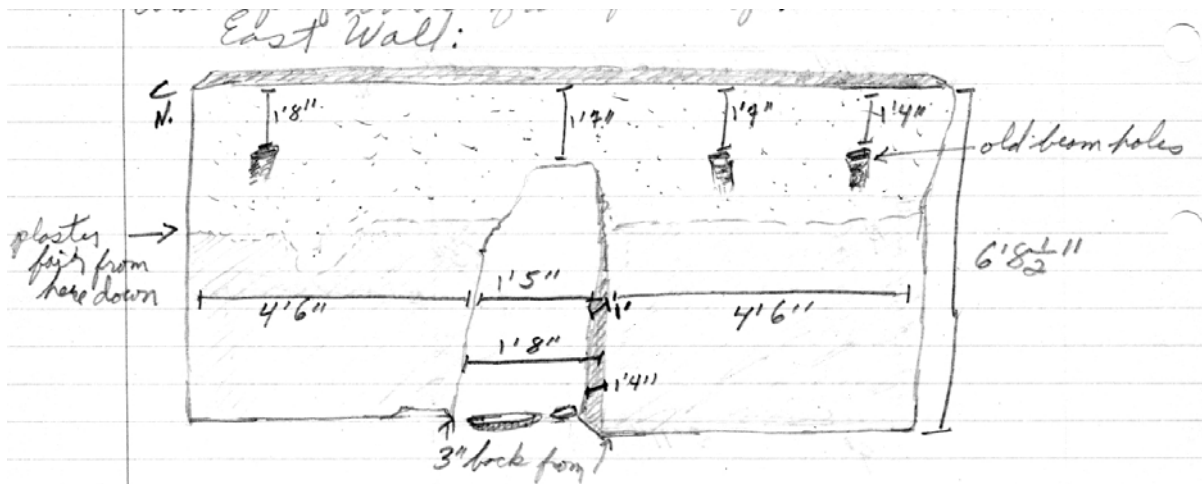 East Wall:
C
N.
1'8"
1'7"
1'7"
1'4"
old beam holes
plaster
fair from
here down
6'8½"
4'6"
1'5"
1'
4'6"
1'8"
1'4"
3" back from